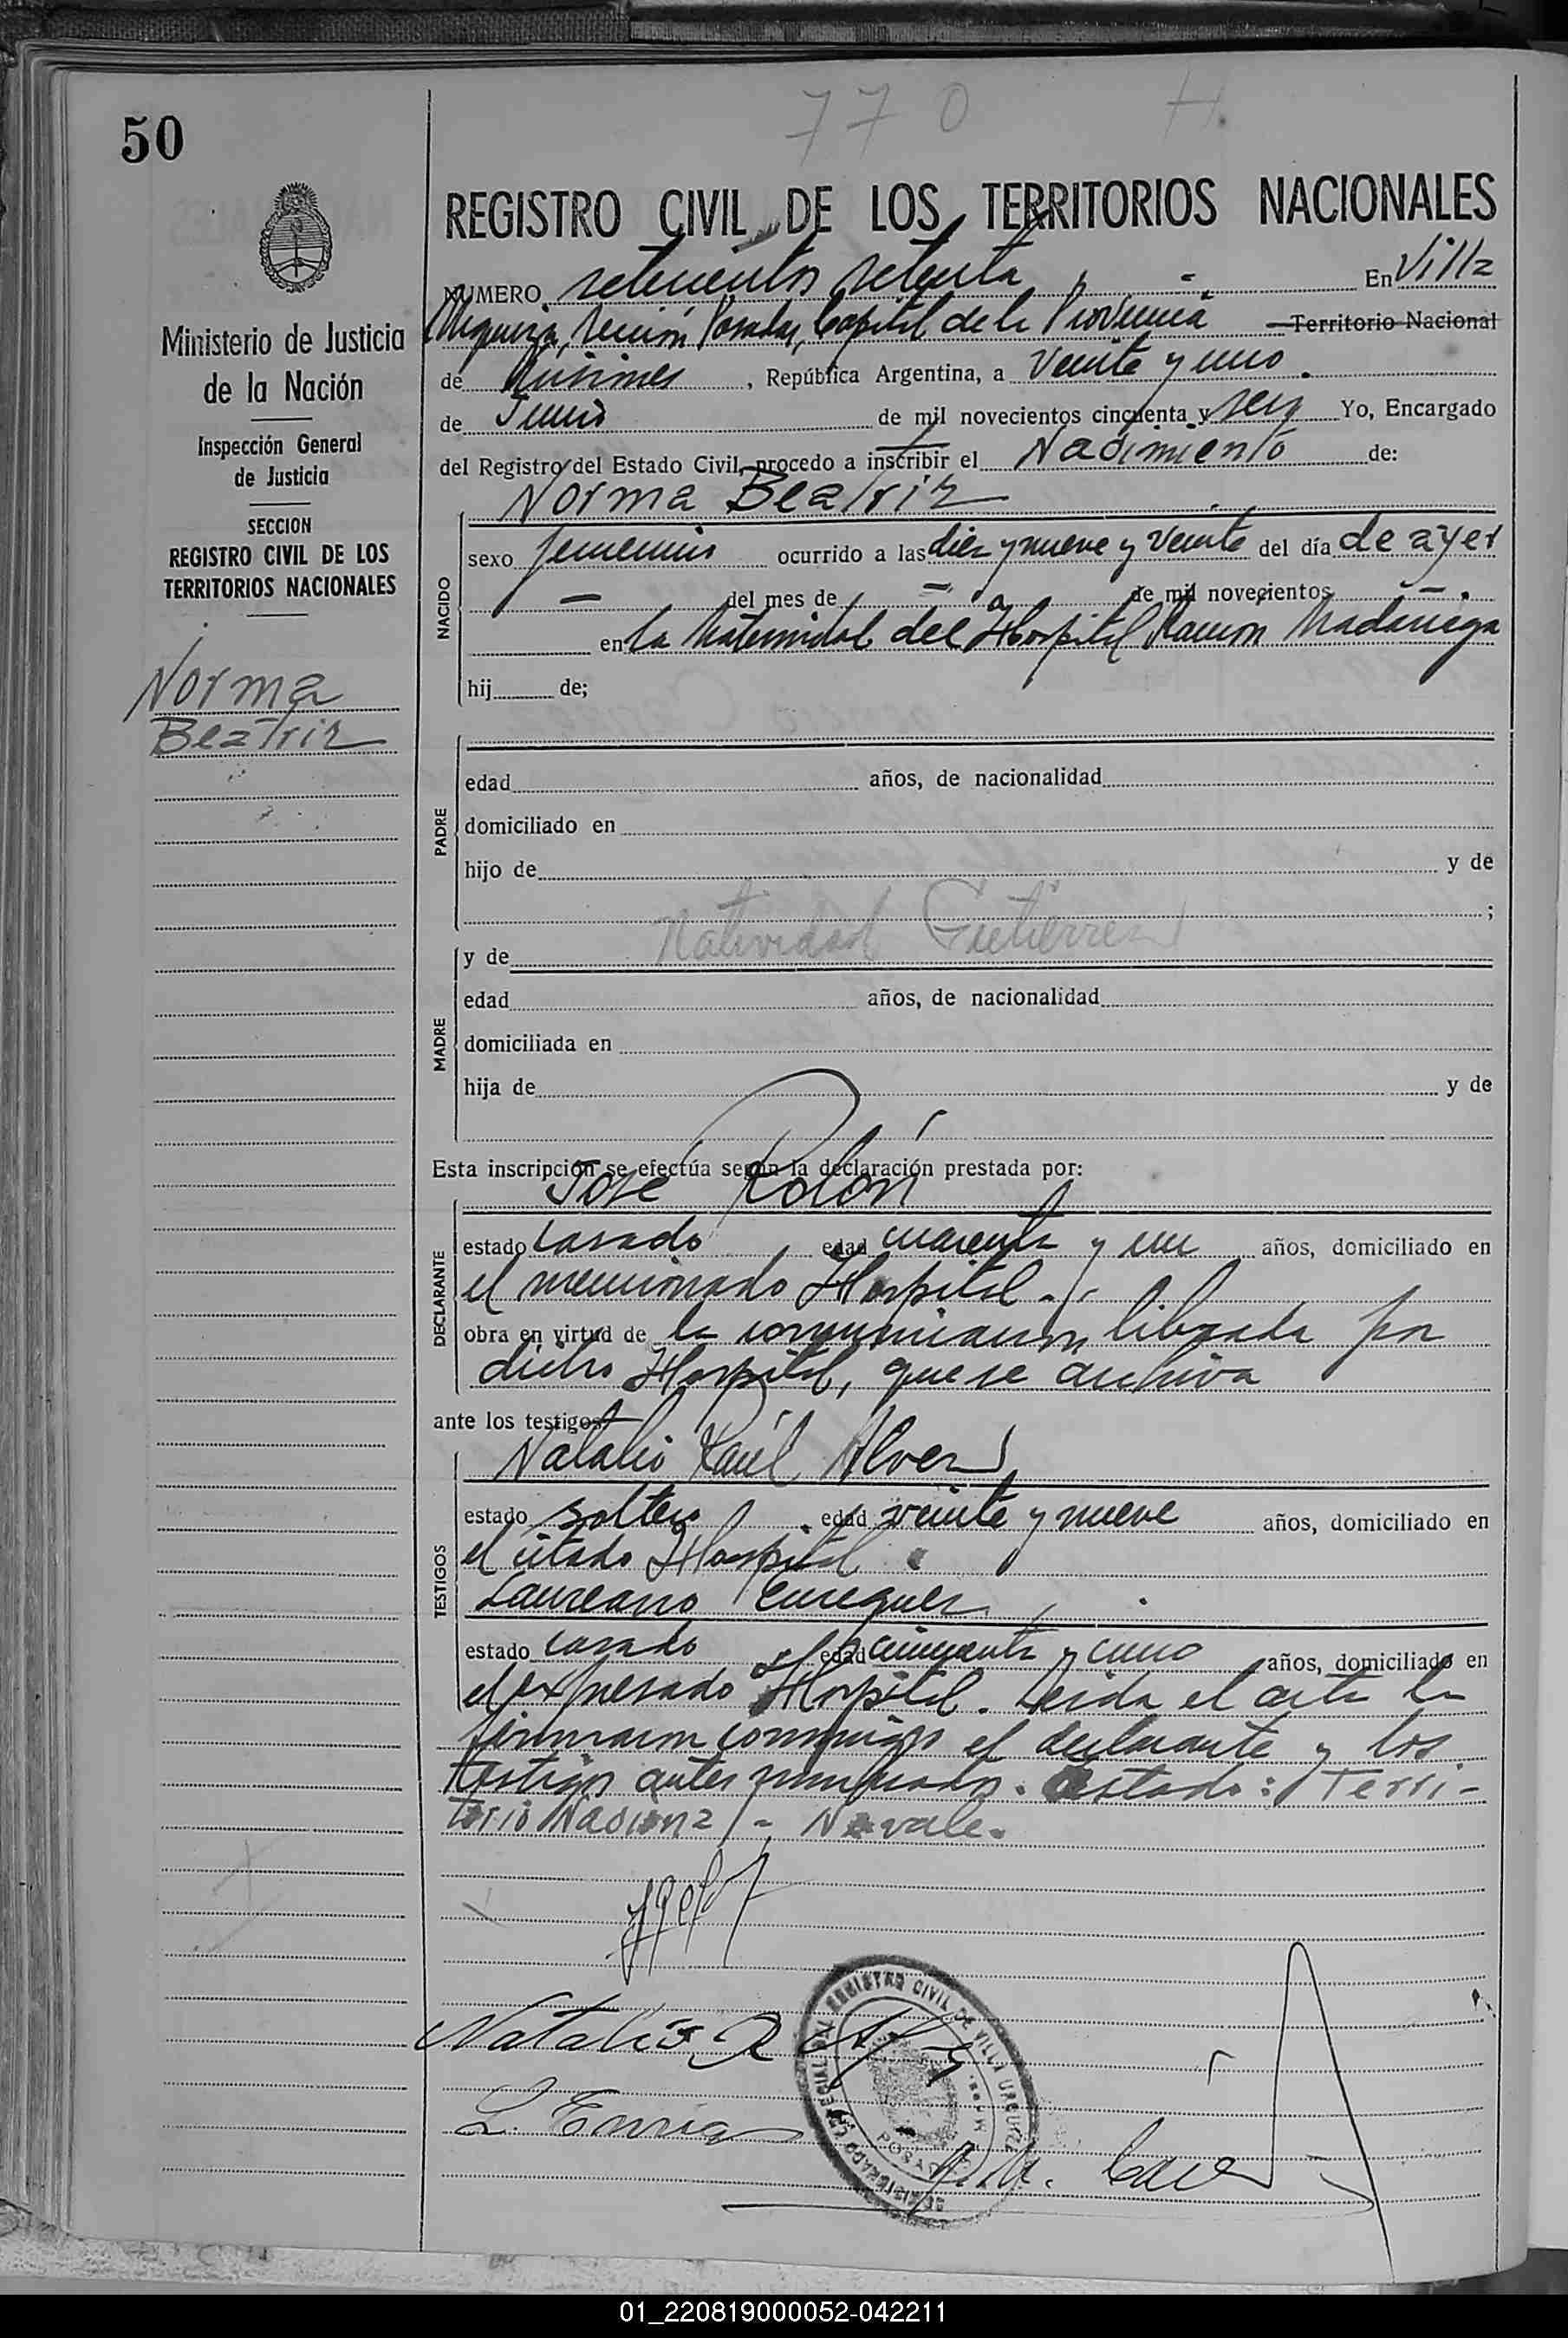 770 H.
50
REGISTRO CIVIL DE LOS TERRITORIOS NACIONALES
NUMERO setecientos setenta - En Villa
Urquiza, Sección Posadas, Capital de la Provincia Territorio Nacional
de Misiones, República Argentina, a veinte y uno
de Junio de mil novecientos cincuenta y seis Yo, Encargado
del Registro del Estado Civil, procedo a inscribir el Nacimiento de:
Norma Beatriz
NACIDO
sexo femenino ocurrido a las diez y nueve y veinte del día de ayer
— del mes de — de mil novecientos —
en la Maternidad del Hospital Ramón Madariaga
hij de;
PADRE
edad años, de nacionalidad
domiciliado en
hijo de y de
;
MADRE
Natividad Gutierrez
y de
edad años, de nacionalidad
domiciliada en
hija de y de
Esta inscripción se efectúa según la declaración prestada por:
José Rolón
DECLARANTE
estado casado edad cuarenta y un años, domiciliado en
el mencionado Hospital.
obra en virtud de la comunicación librada por
dicho Hospital, que se archiva
ante los testigos
Natalio Raúl Alvez
TESTIGOS
estado soltero edad veinte y nueve años, domiciliado en
el citado Hospital
Laureano Enriquez
estado casado edad cincuenta y cinco años, domiciliado en
el expresado Hospital. Leida el acta la
firmaron conmigo el declarante y los
testigos antes nombrados. Testado: Terri-
torio Nacional - No vale.
Natalio R
L. Enriq
REGISTRO CIVIL DE VILLA URQUIZA
POSADAS
Ministerio de Justicia
de la Nación
Inspección General
de Justicia
SECCION
REGISTRO CIVIL DE LOS
TERRITORIOS NACIONALES
Norma
Beatriz
01_220819000052-042211